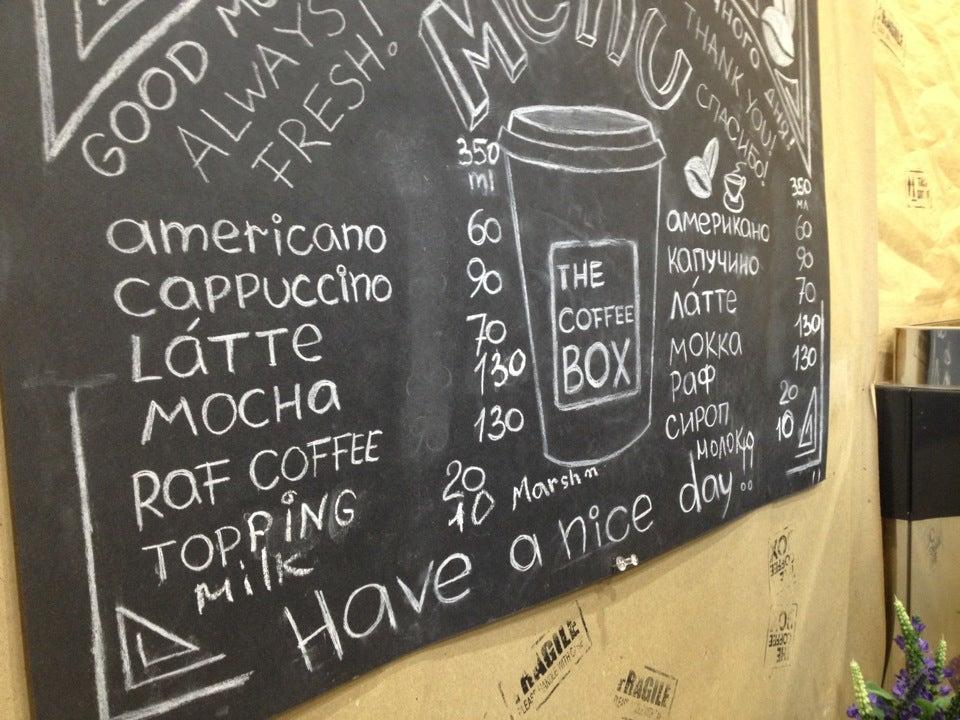 GOOD
ALWAYS
FRESH!
Menu
THANK YOU!
СПАСИБО!
ДНЯ!
350
ml
americano 60
cappuccino 90
Látte 70
Mocha 130
Raf COFFEE 130
TOPPING 20
Milk 10
Marsh
THE
COFFEE
BOX
350
мл
американо 60
капучино 90
látте 70
мокка 130
раф 130
сироп 20
молоко 10
Have a nice day
FRAGILE
FRAGILE
FRAGILE
THE COFFEE